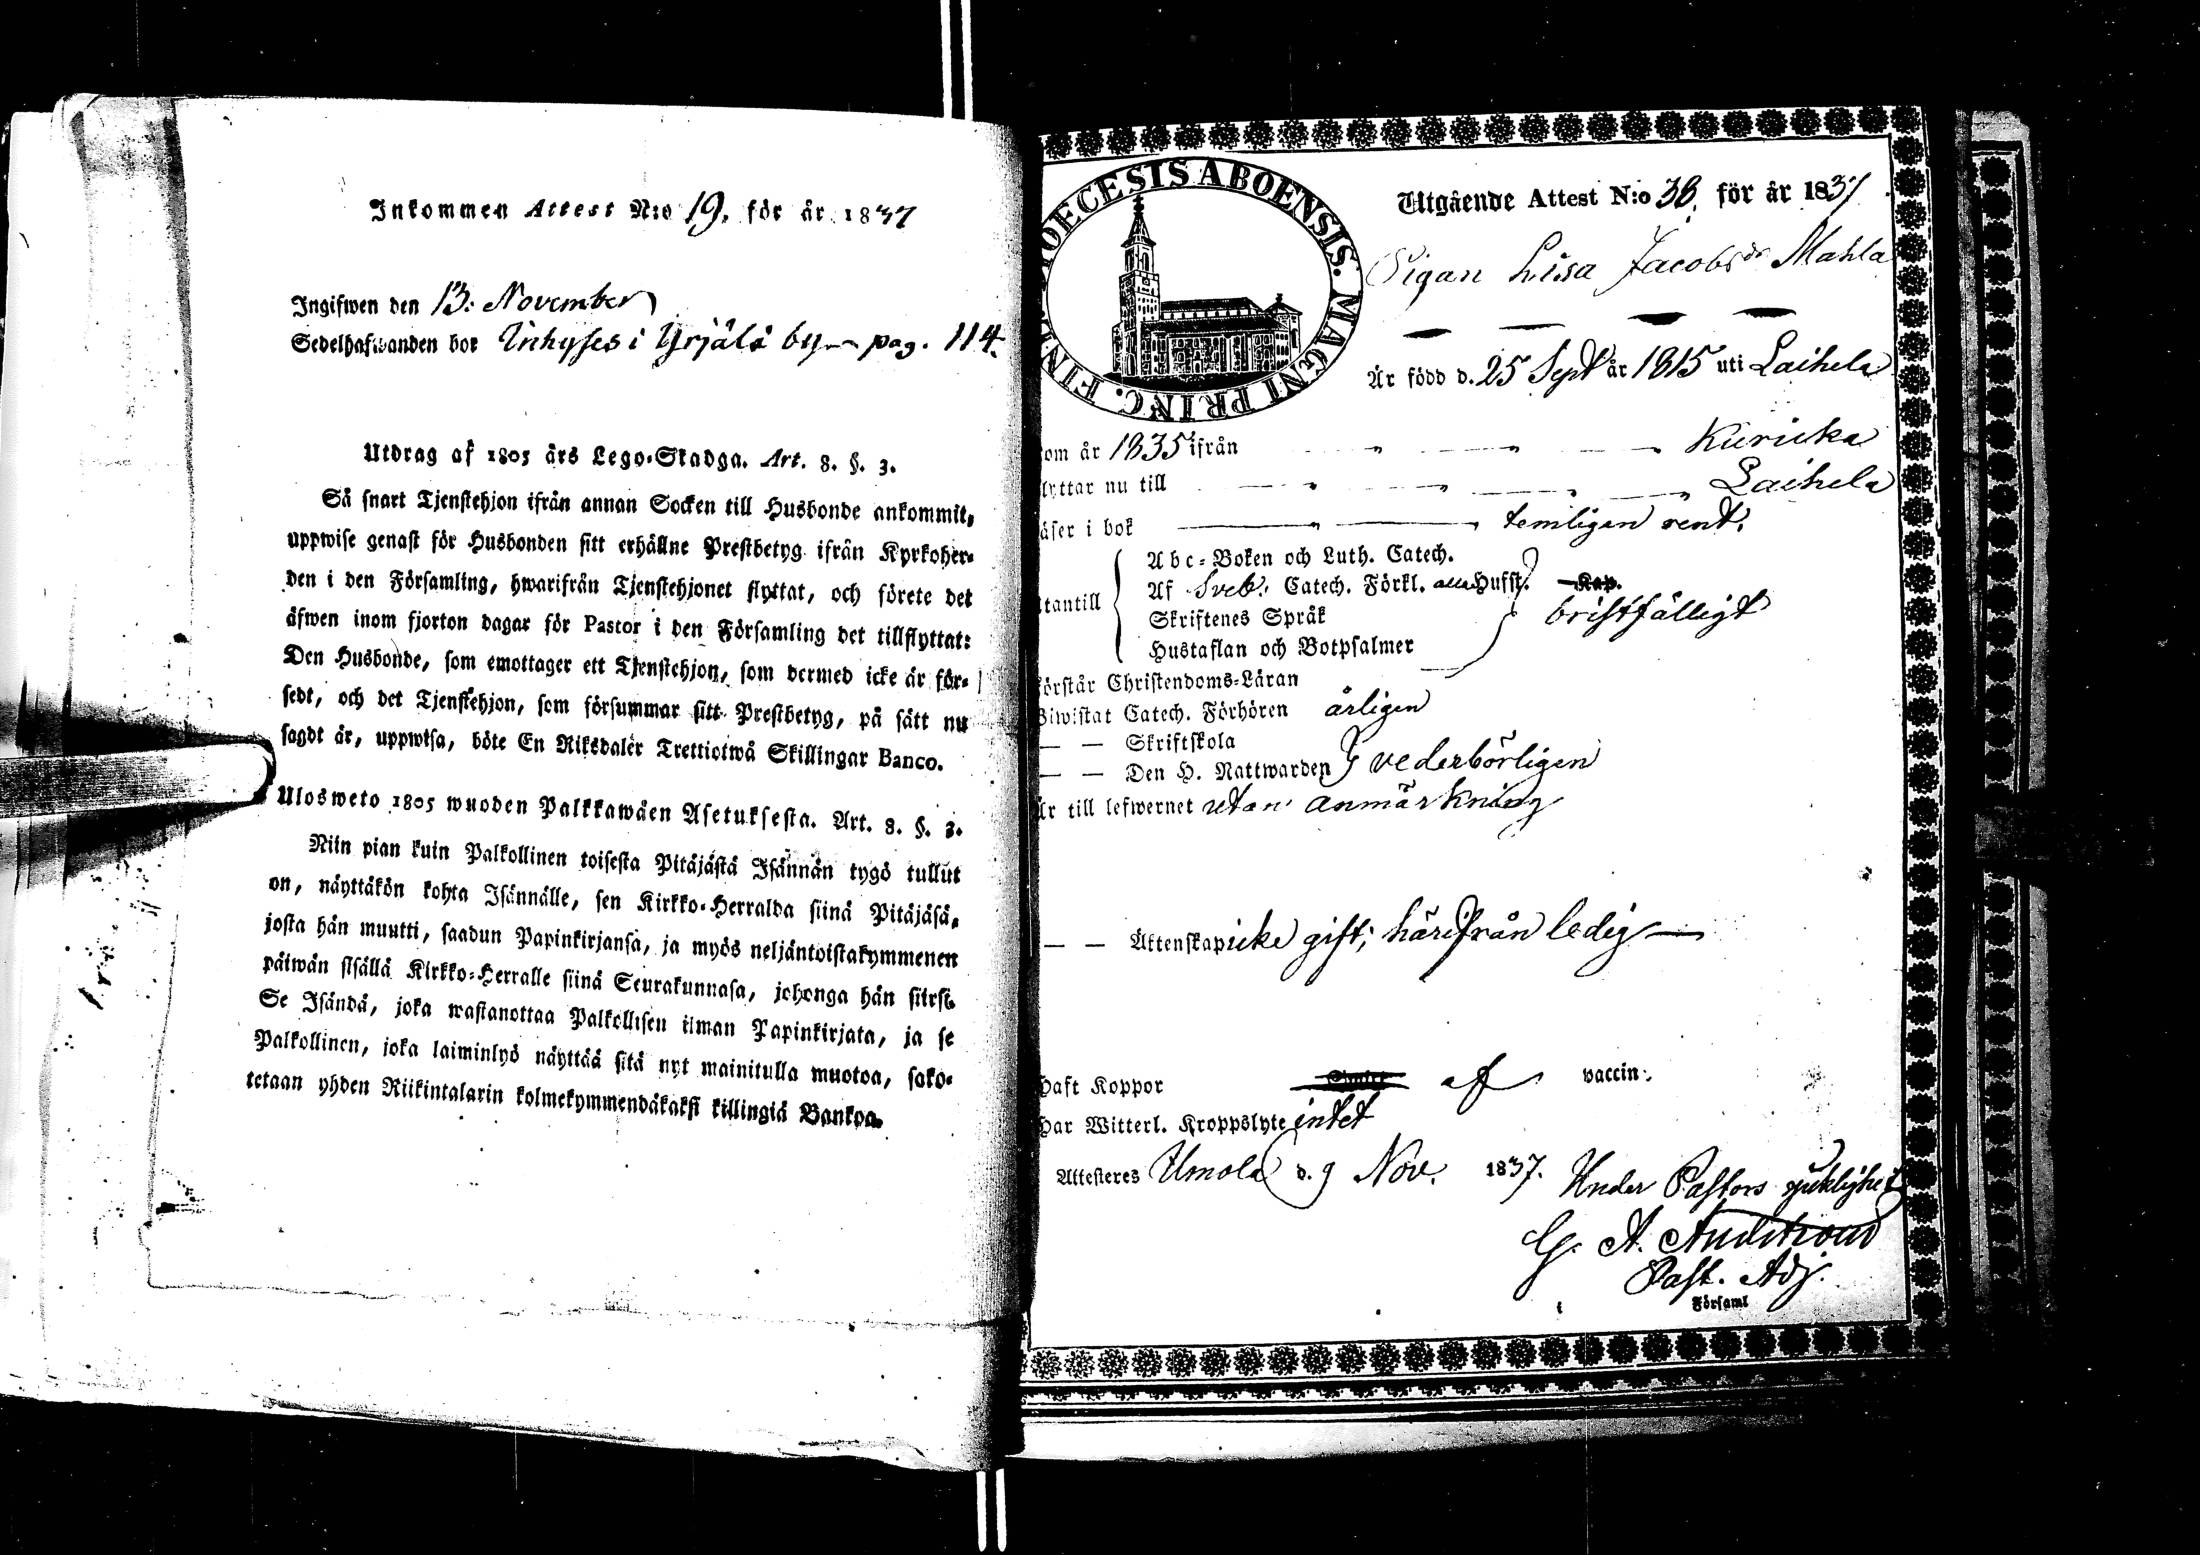 Inkommen Attest N:o 19. för år 1837
Ingifwen den 13. November
Sedelhafwanden bor Inhyses i Yrjälä by pag. 114.
Utdrag af 1805 års Lego-Stadga. Art. 8. §. 3.
Så snart Tjenstehjon ifrån annan Socken till Husbonde ankommit,
uppwise genast för Husbonden sitt erhållne Prestbetyg ifrån Kyrkoher-
den i den Församling, hwarifrån Tjenstehjonet flyttat, och förete det
äfwen inom fjorton dagar för Pastor i den Församling det tillflyttat:
Den Husbonde, som emottager ett Tjenstehjon, som dermed icke är för-
sedt, och det Tjenstehjon, som försummar sitt Prestbetyg, på sätt nu
sagdt är, uppwisa, böte En Riksdaler Trettiotwå Skillingar Banco.
Ulosweto 1805 wuoden Palkkawäen Asetuksesta. Art. 8. §. 3.
Niin pian kuin Palkollinen toisesta Pitäjästä Isännän tygö tullut
on, näyttäkön kohta Isännälle, sen Kirkko-Herralda siinä Pitäjäsä,
josta hän muutti, saadun Papinkirjansa, ja myös neljäntoistakymmenen
päiwän sisällä Kirkko-Herralle siinä Seurakunnasa, johonga hän siirsi.
Se Isändä, joka wastanottaa Palkollisen ilman Papinkirjata, ja se
Palkollinen, joka laiminlyö näyttää sitä nyt mainitulla muotoa, sako-
tetaan yhden Riikintalarin kolmekymmendäkaksi killingiä Bankoa.
DIOECESIS ABOENSIS. MAGNI PRINC. FINL.
Utgående Attest N:o 38. för år 1837
Pigan Lisa Jacobsdr Mahla
Är född d. 25 Sept år 1815 uti Laihela
om år 1835 ifrån Kuricka
lyttar nu till Laihela
äser i bok temligen rent.
Abc-Boken och Luth. Catech.
Af Sveb. Catech. Förkl. alla Hufst. Kap.
tantill
Skriftenes Språk
bristfälligt
Hustaflan och Botpsalmer
örstår Christendoms-Läran
Biwistat Catech. Förhören årligen
— — Skriftskola
— — Den H. Nattwarden vederbörligen
är till lefwernet utan anmärkning
— — Äktenskap icke gift; härifrån ledig —
haft Koppor af vaccin.
har Witterl. Kroppslyte intet
Attesteras Ilmola d. 9 Nov. 1837. Under Pastors sjuklighet
G. A.
Past. Adj.
Församl